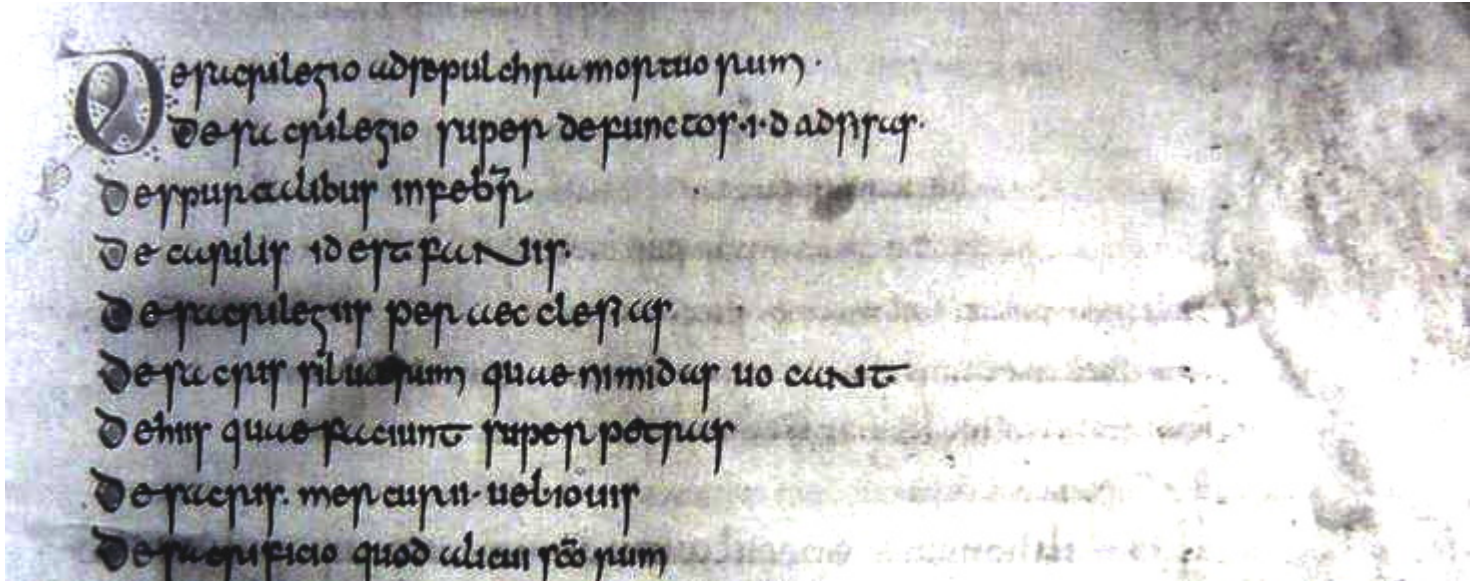 De sacrilegio ad sepulchra mortuorum·
De sacrilegio super defunctos·i·dadsisas·
De spurcalibus in febr̄
De casulis id est fanis·
De sacrilegiis per aecclesias
De sacris siluarum quae nimidas uocant
De hiis quae faciunt super petras
De sacris· mercurii· uel iouis
De sacrificio quod alicui sc̄orum